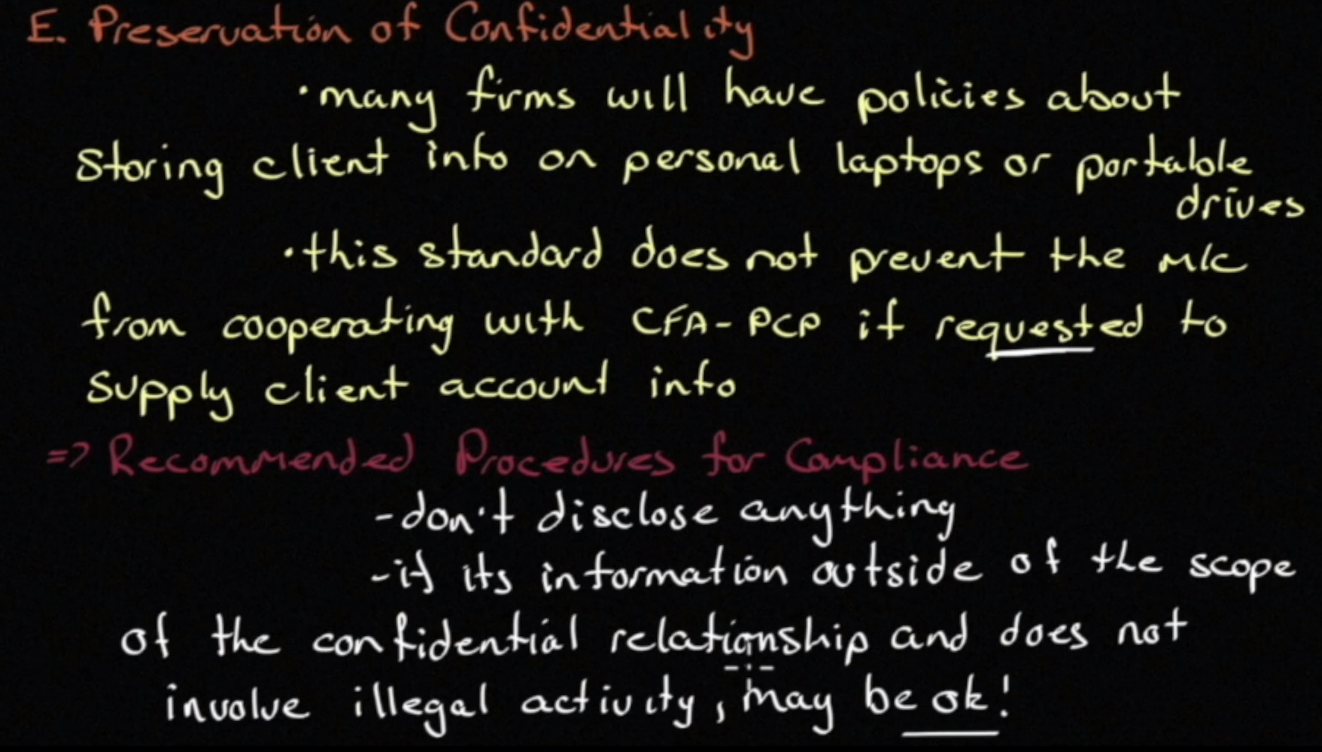 E. Preservation of Confidentiality
• many firms will have policies about
storing client info on personal laptops or portable
drives
• this standard does not prevent the m/c
from cooperating with CFA-PCP if requested to
supply client account info
=> Recommended Procedures for Compliance
- don't disclose anything
- if its information outside of the scope
of the confidential relationship and does not
involve illegal activity, may be ok!